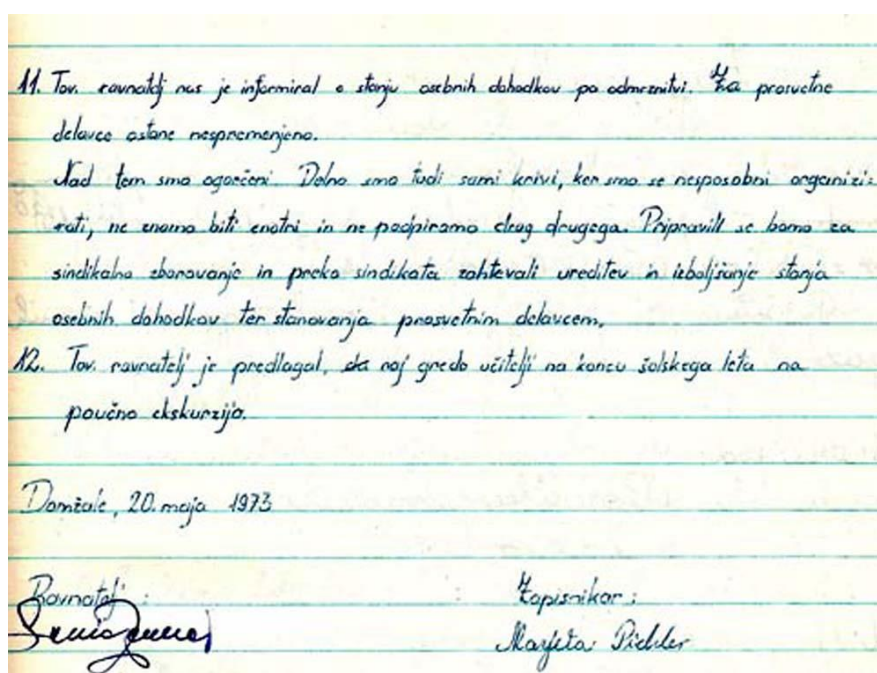 11. Tov. ravnatelj nas je informiral o stanju osebnih dohodkov po odmrznitvi. Za prosvetne
delavce ostane nespremenjeno.
Nad tem smo ogorčeni. Delno smo tudi sami krivi, ker smo se nesposobni organizi=
rati, ne znamo biti enotni in ne podpiramo drug drugega. Pripravili se bomo za
sindikalno zborovanje in preko sindikata zahtevali ureditev in izboljšanje stanja
osebnih dohodkov ter stanovanja prosvetnim delavcem.
12. Tov. ravnatelj je predlagal, da naj gredo učitelji na koncu šolskega leta na
poučno ekskurzijo.
Domžale, 20. maja 1973
Ravnatelj : Zapisnikar :
Marjeta Pichler